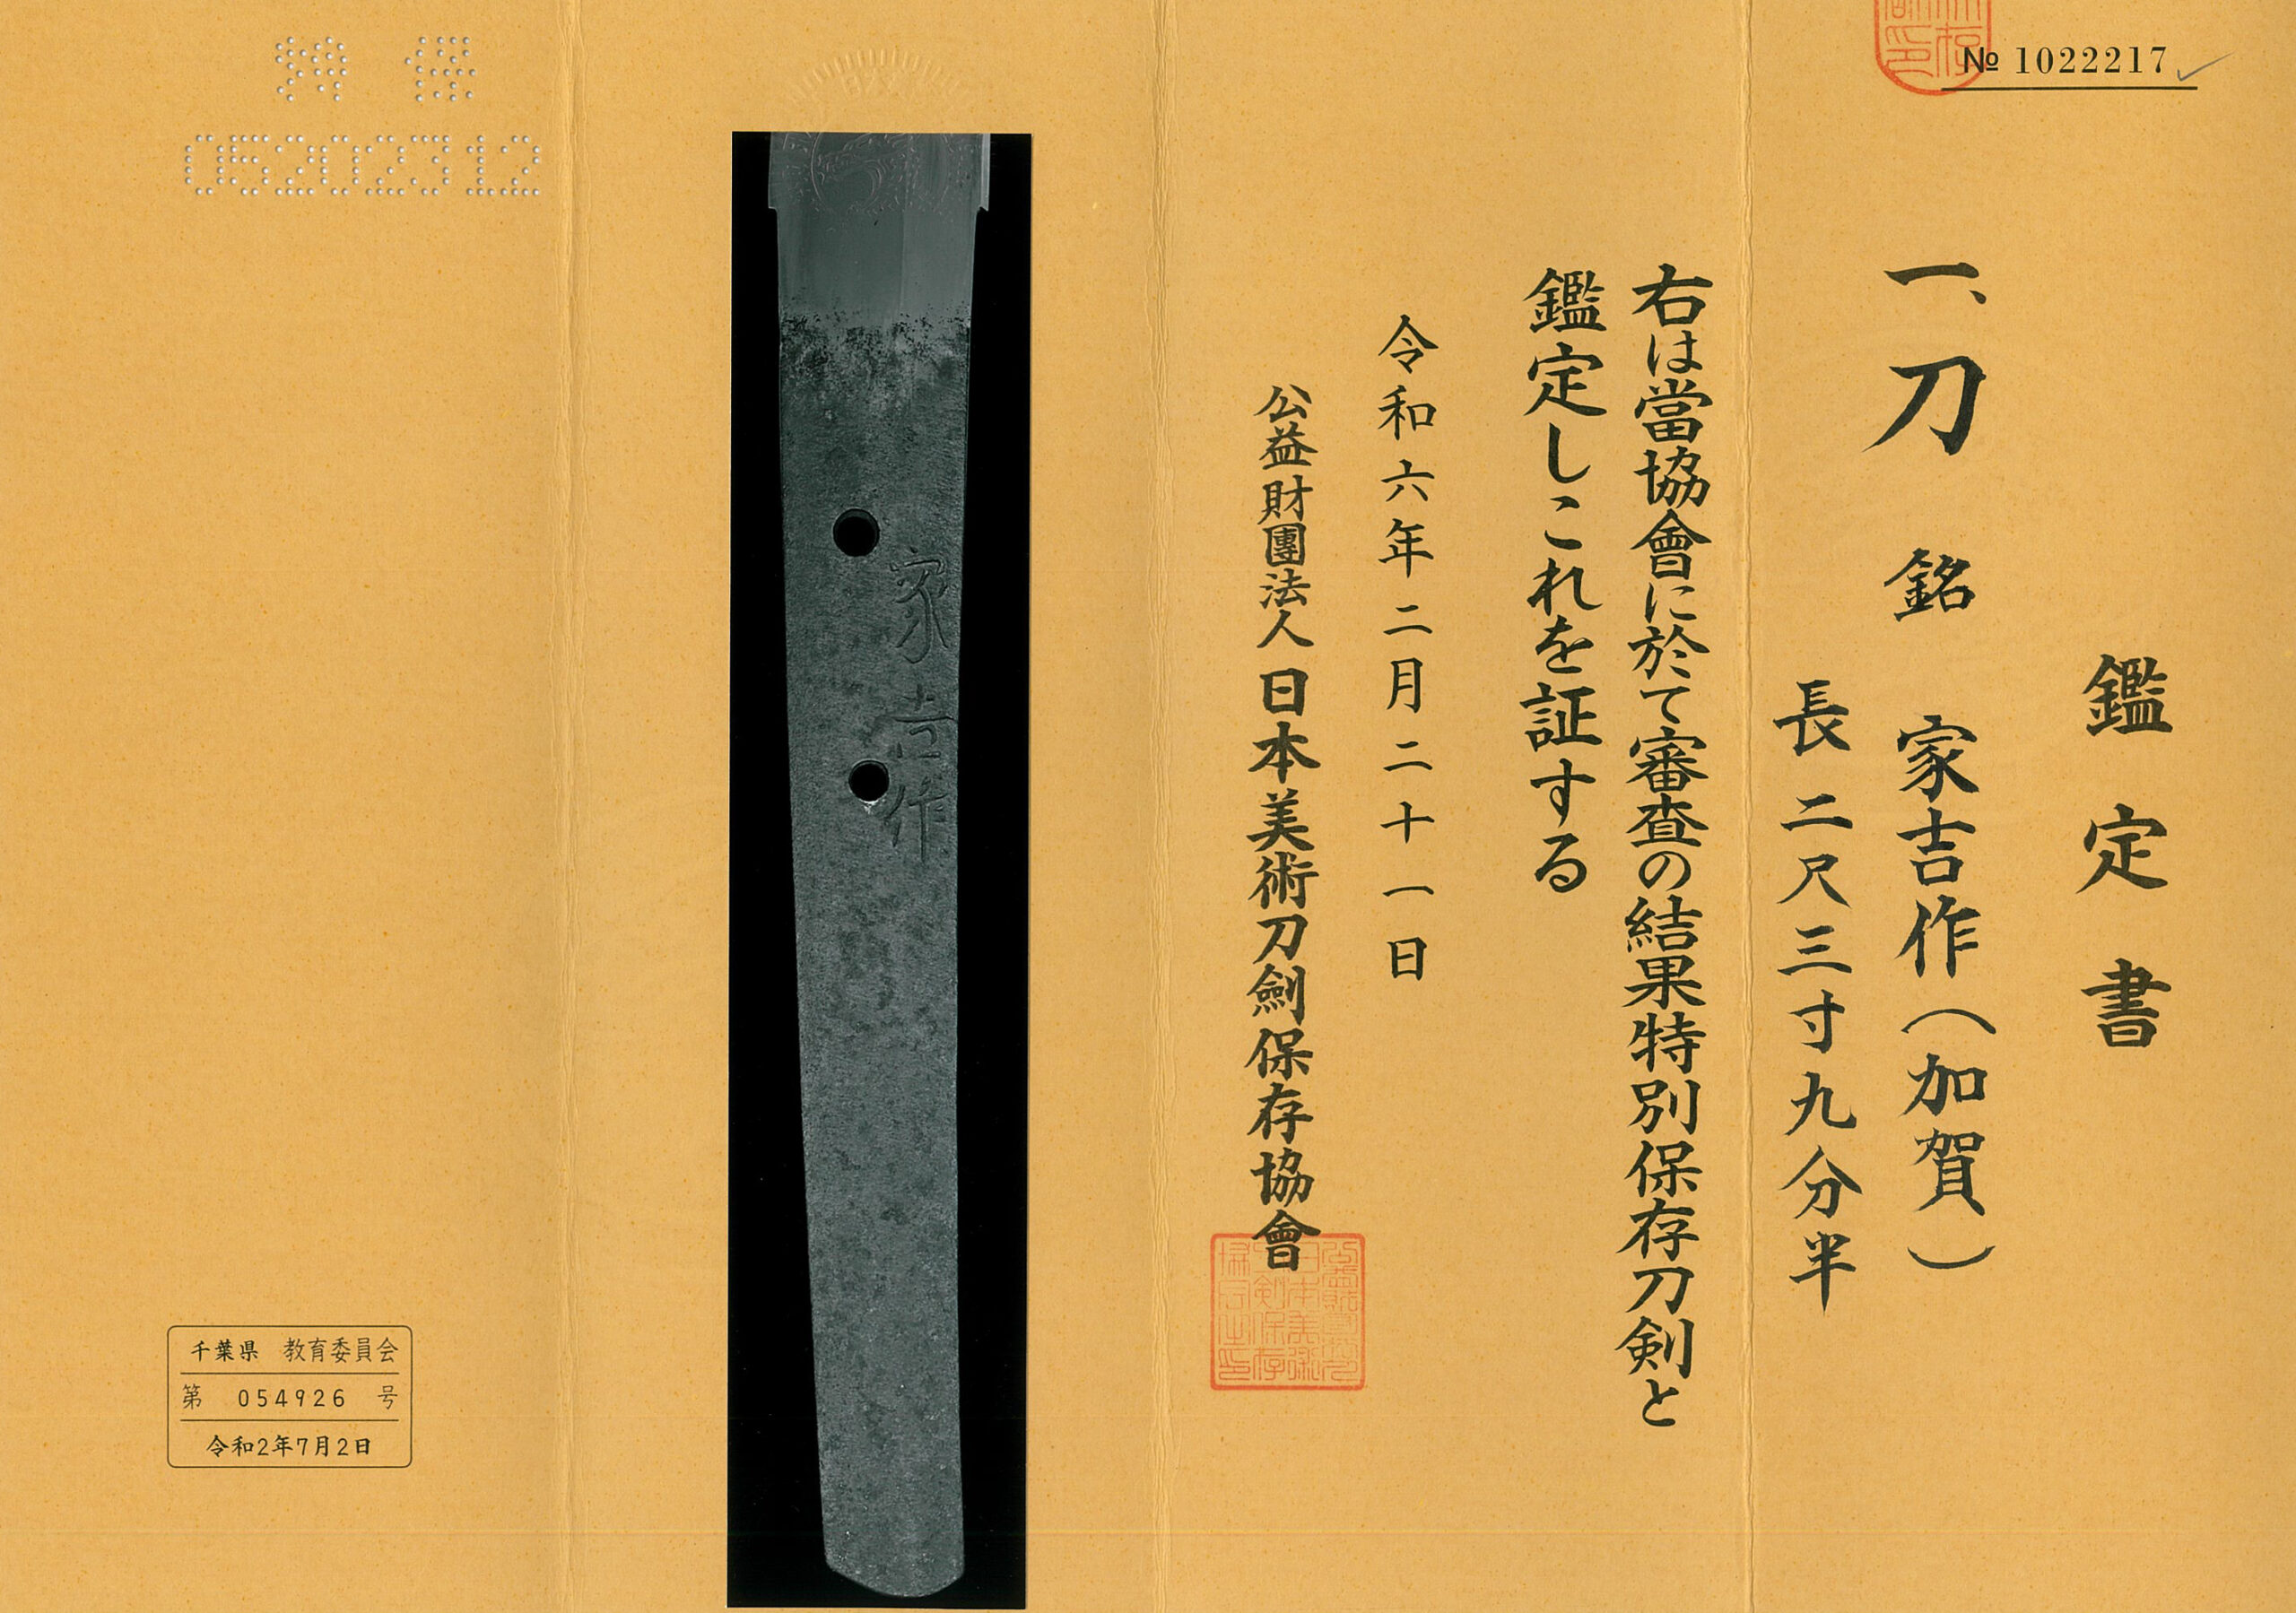 № 1022217
鑑定書
一、刀 銘 家吉作(加賀)
長二尺三寸九分半
右は當協會に於て審査の結果特別保存刀剣と
鑑定しこれを証する
令和六年二月二十一日
公益財團法人日本美術刀劍保存協會
家吉作
05202312
千葉県 教育委員会
第 054926 号
令和2年7月2日